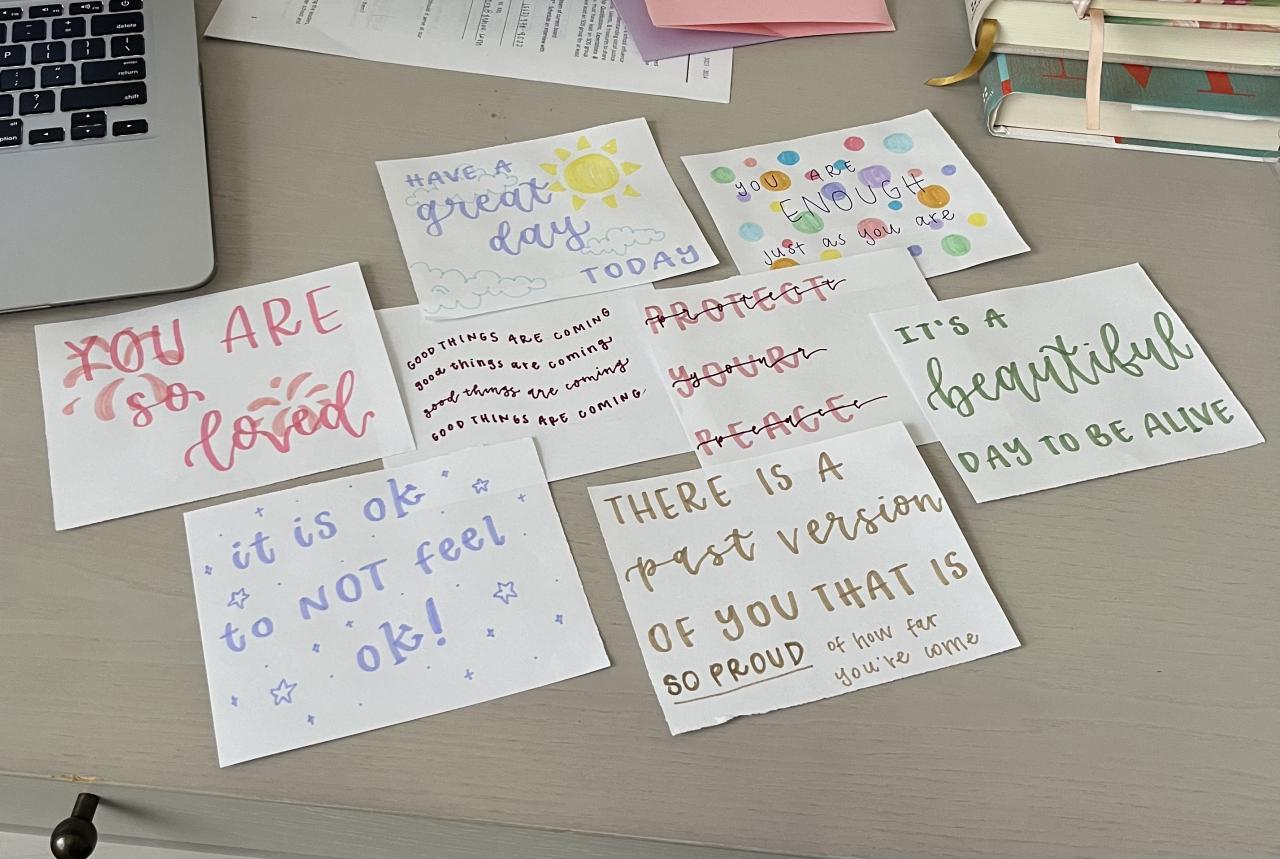 delete
enter
return
shift
option
2023 2024
HAVE A
great
day
TODAY
YOU ARE
ENOUGH
just as you are
YOU ARE
so
loved
GOOD THINGS ARE COMING
good things are coming
good things are coming
GOOD THINGS ARE COMING
PROTECT
protect
YOUR
your
PEACE
peace
IT'S A
beautiful
DAY TO BE ALIVE
it is ok
to NOT feel
ok!
THERE IS A
past version
OF YOU THAT IS
SO PROUD of how far
you're come